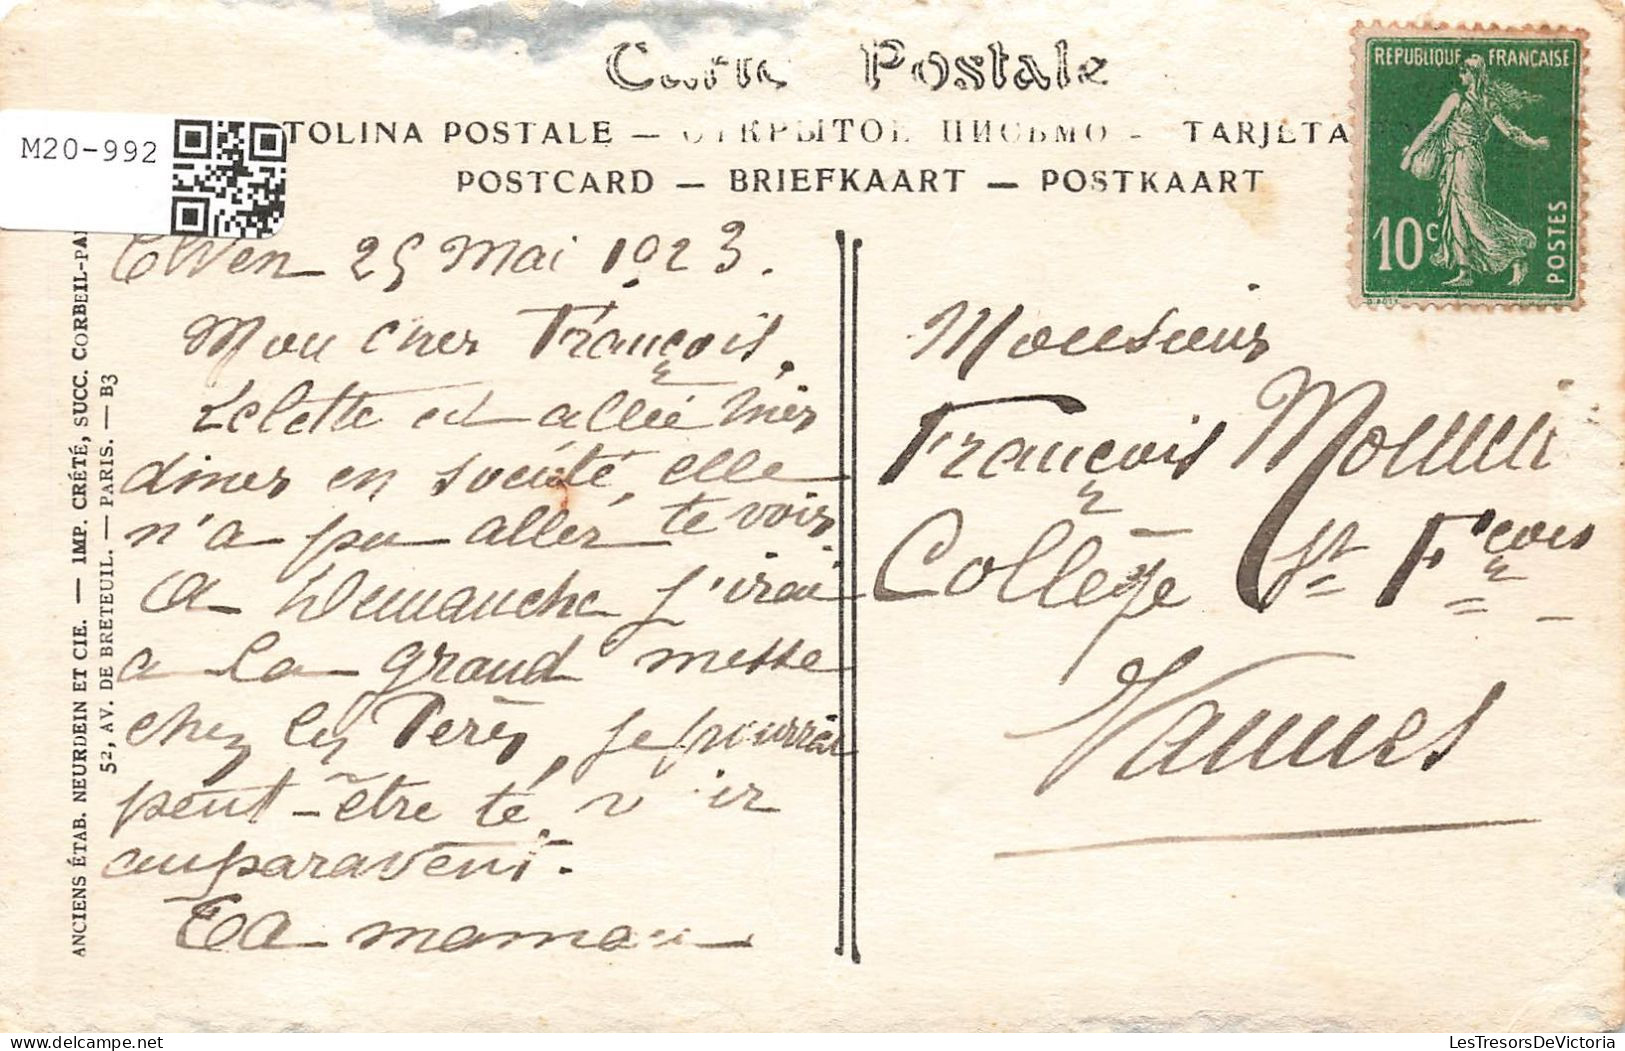 Carte Postale
TOLINA POSTALE — ОТКРЫТОЕ ПИСЬМО - TARJETA
POSTCARD — BRIEFKAART — POSTKAART
M20-992
REPUBLIQUE FRANÇAISE
10c
POSTES
ANCIENS ÉTAB. NEURDEIN ET CIE. — IMP. CRÉTÉ, SUCC. CORBEIL-PA
52, AV. DE BRETEUIL. — PARIS. — B3
Elven 25 Mai 1923.
Mon cher François,
est allée hier
diner en société, elle
n'a pu aller te voir
A Demanche j'irai
a la grand messe
chez les Pères, je pourrai
peut-être te voir
auparavent.
Ta maman
Monsieur
François
Collège St Fçois
Vannes
LesTresorsDeVictoria